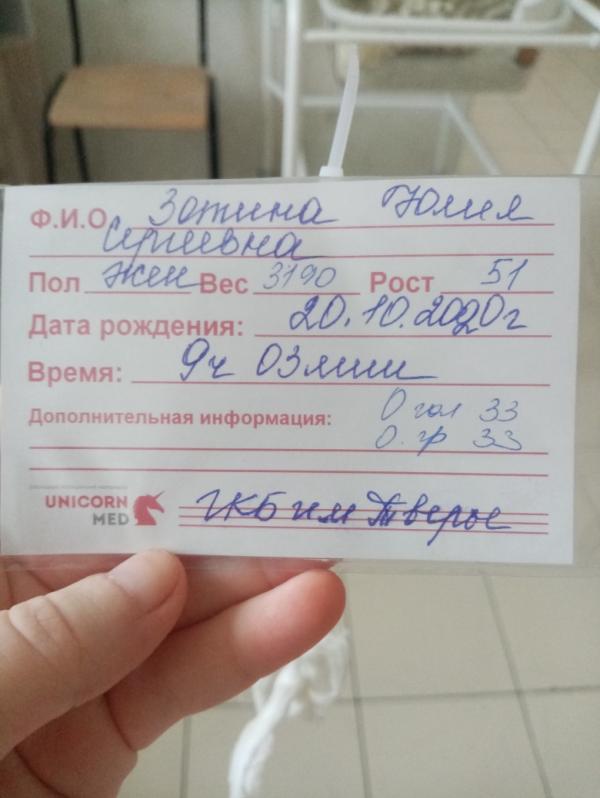 Ф.И.О. Зотина Юлия
Сергеевна
Пол жен Вес 3190 Рост 51
Дата рождения: 20.10.2020г
Время: 9ч 03мин
Дополнительная информация: О гол 33
О.гр 33
UNICORN
MED
ГКБ им Тверье